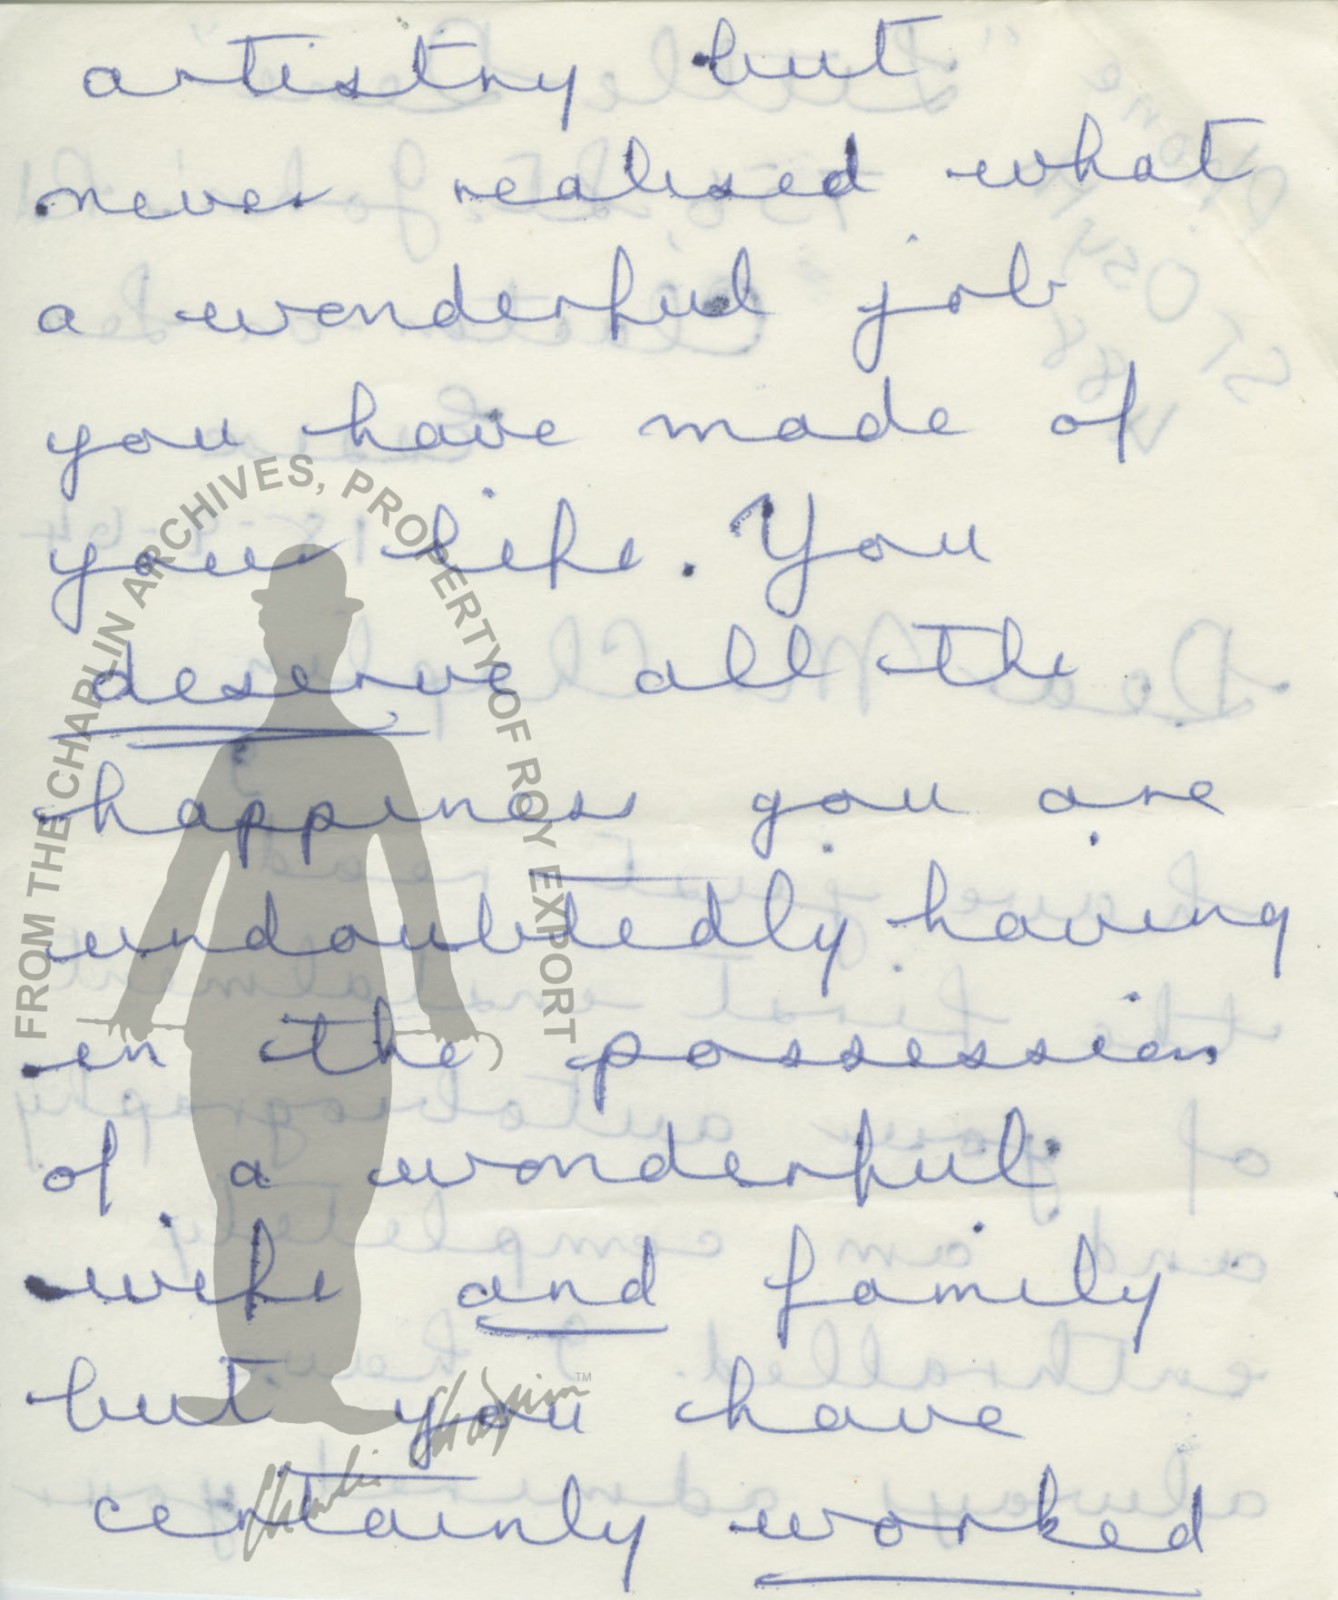 artistry but
never realised what
a wonderful job
you have made of
your life. You
deserve all the
happiness you are
undoubtedly having
in the possession
of a wonderful
wife and family
but you have
certainly worked
FROM THE CHAPLIN ARCHIVES, PROPERTY OF ROY EXPORT
Charlie Chaplin™